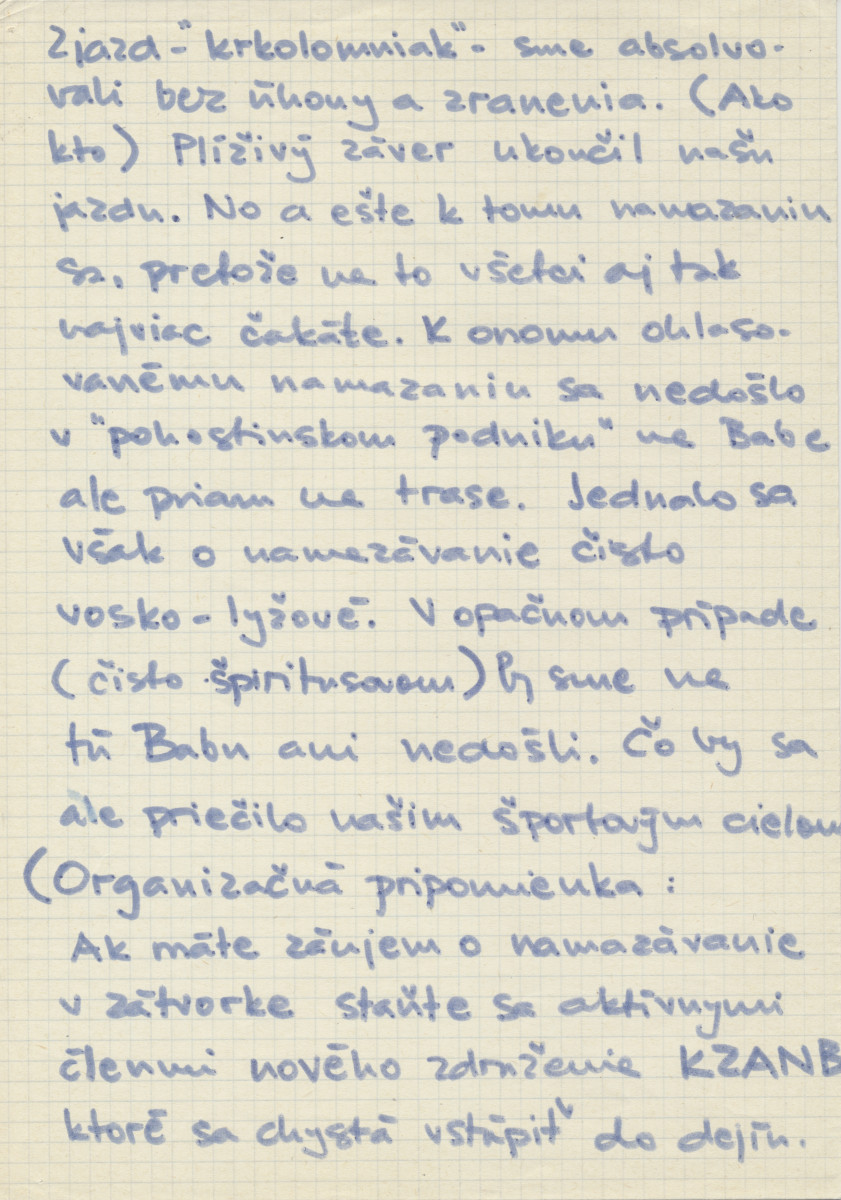 Zjazd-"krkolomniak"- sme absolvo-
vali bez úhony a zranenia. (Ako
kto) Plíživý záver ukončil našu
jazdu. No a ešte k tomu namazaniu
sa, pretože na to všetci aj tak
najviac čakáte. K onomu ohlaso-
vanému namazaniu sa nedošlo
v "pohostinskom podniku" na Babe
ale priam na trase. Jednalo sa
však o namazávanie čisto
vosko-lyžové. V opačnom prípade
(čisto špiritusovom) by sme na
tú Babu ani nedošli. Čo by sa
ale priečilo našim športovým cielom
(Organizačná pripomienka:
Ak máte záujem o namazávanie
v zátvorke staňte sa aktívnymi
členmi nového združenia KZANB
ktoré sa chystá vstúpiť do dejín.